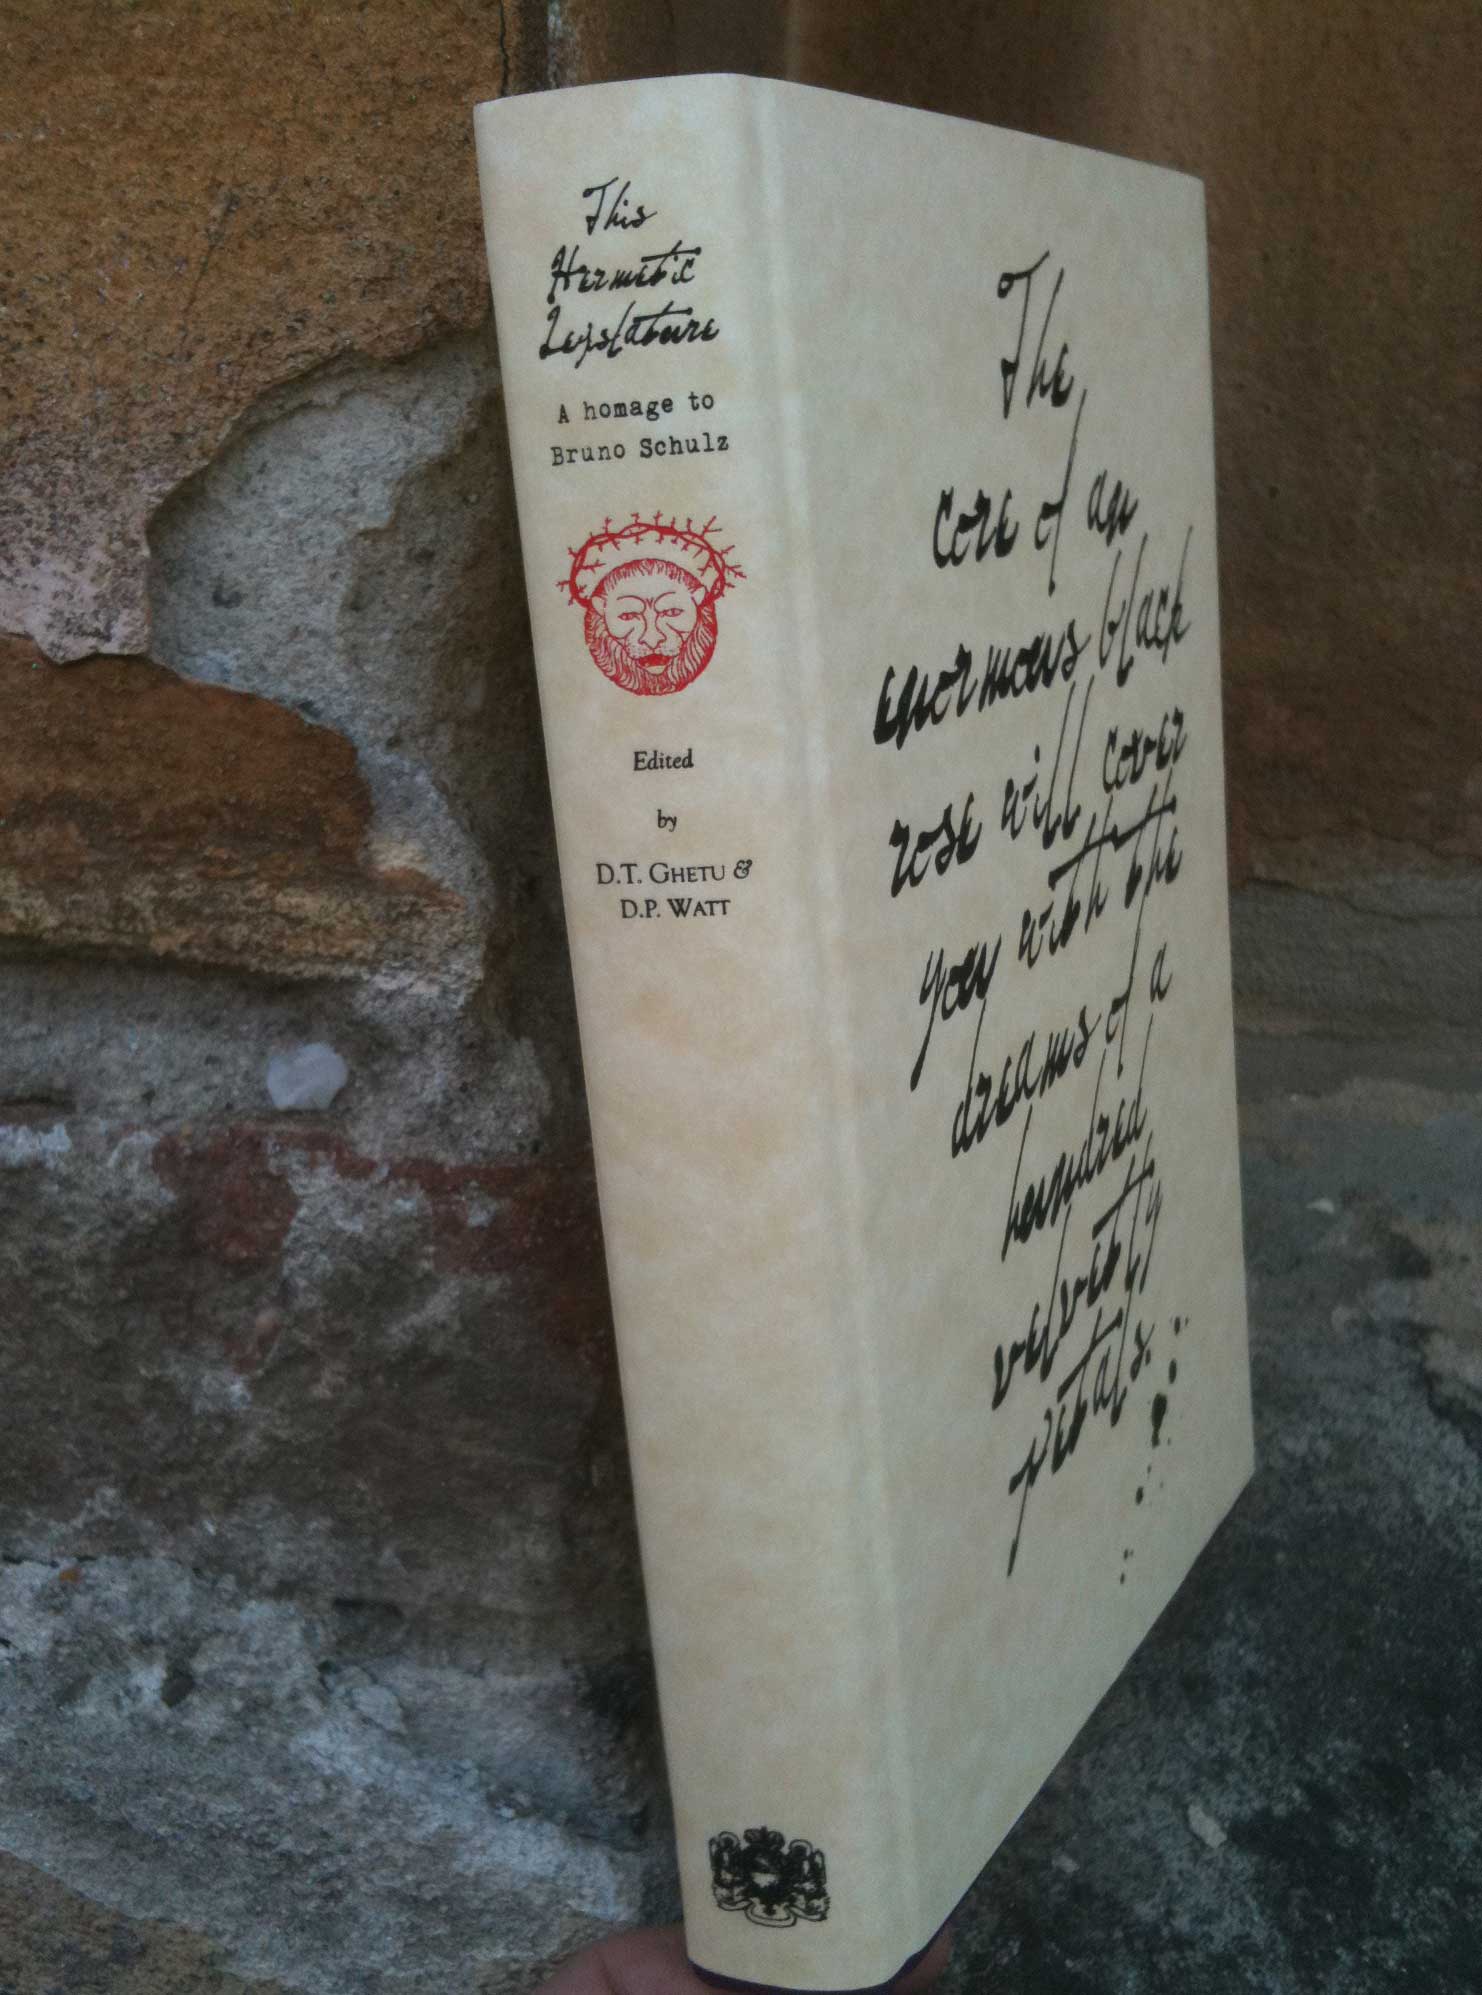 This
Hermetic
Legislature
A homage to
Bruno Schulz
Edited
by
D.T. GHETU &
D.P. WATT
The
core of an
enormous black
rose will cover
you with the
dreams of a
hundred
velvetly
petals.